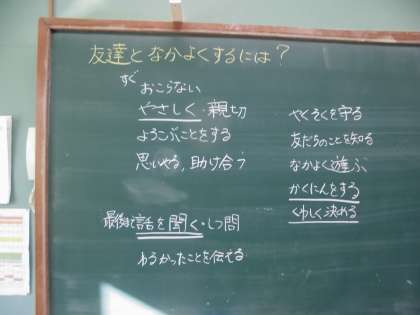 友達となかよくするには？
すぐおこらない
やさしく・親切
ようこぶことをする
思いやる,助け合う
最後は話を聞く・しつ問
わるかったことを伝える
やくそくを守る
友だちのことを知る
なかよく遊ぶ
かくにんをする
くわしく決める